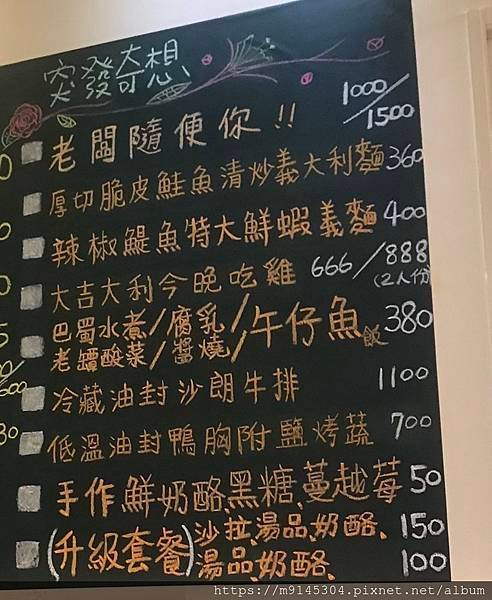 突發奇想
老闆隨便你!! 1000/1500
厚切脆皮鮭魚清炒義大利麵 360
辣椒鯷魚特大鮮蝦義麵 400
大吉大利今晚吃雞 666/888
(2人份)
巴蜀水煮/腐乳/午仔魚飯 380
老罈酸菜/醬燒/
冷藏油封沙朗牛排 1100
低溫油封鴨胸附鹽烤蔬 700
手作鮮奶酪、黑糖、蔓越莓 50
(升級套餐)沙拉、湯品、奶酪、150
湯品、奶酪、100
https://m9145304.pixnet.net/album